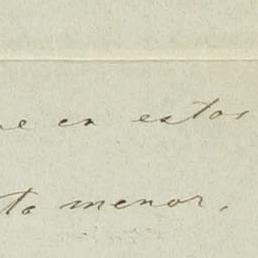 en estos
menor,